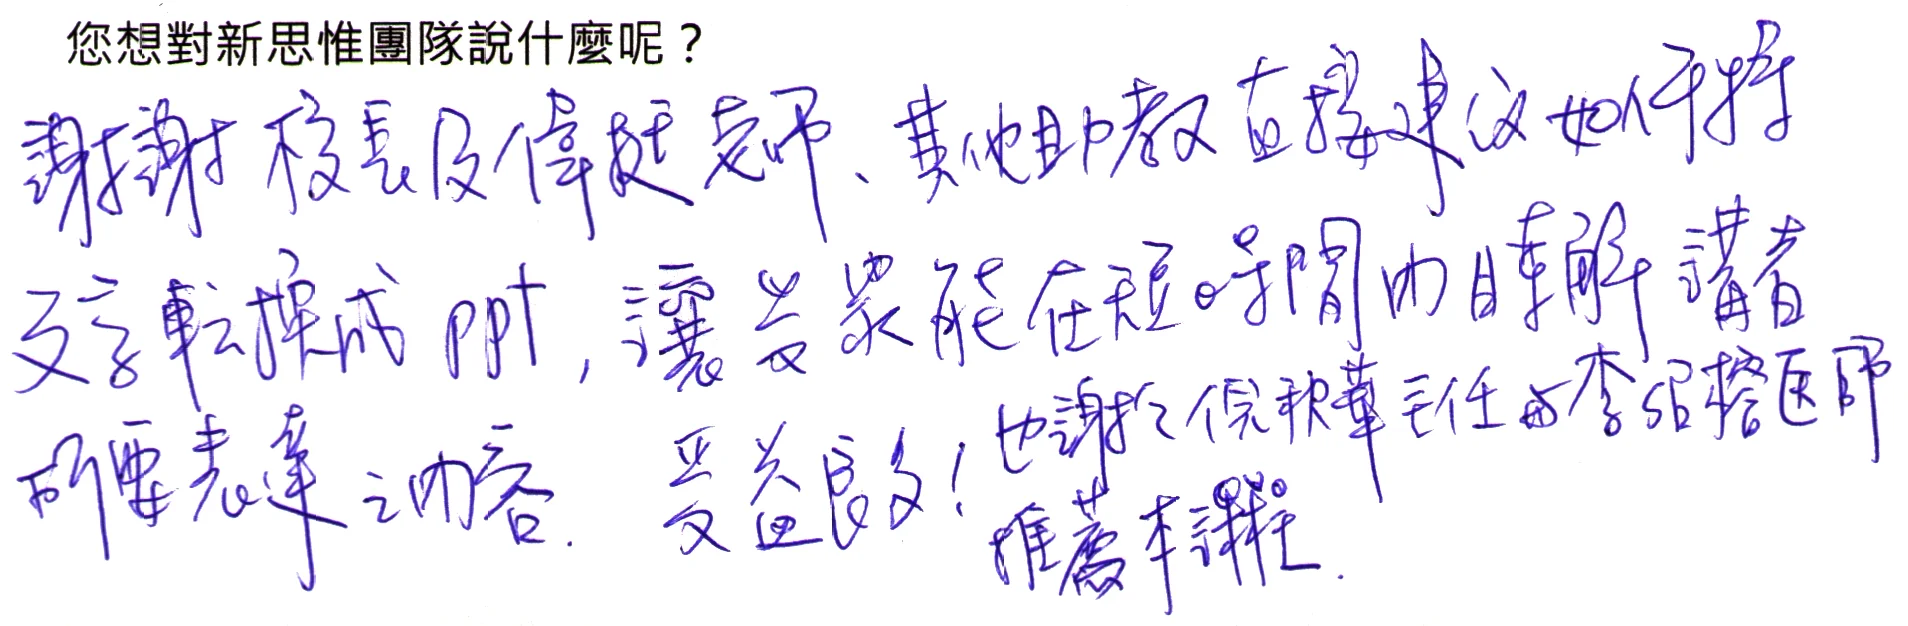 您想對新思惟團隊說什麼呢？
謝謝校長及偉挺老師、其他助教直接建議如何將
文字轉換成 ppt，讓聽眾能在短時間內瞭解講者
所要表達之內容. 受益良多！
也謝謝倪秋華主任與李紹榕医師
推薦本課程.